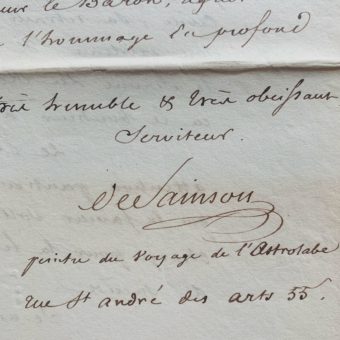 le Baron, agréer
l'hommage du profond
très humble & très obéissant
Serviteur.
de Sainson
peintre du voyage de l'Astrolabe
rue St andré des arts 55.